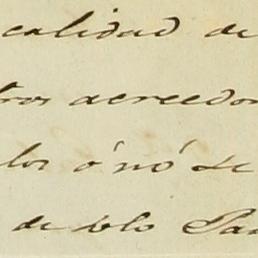 calidad de
tros acreedor
los ó nó se
de dlo Pa